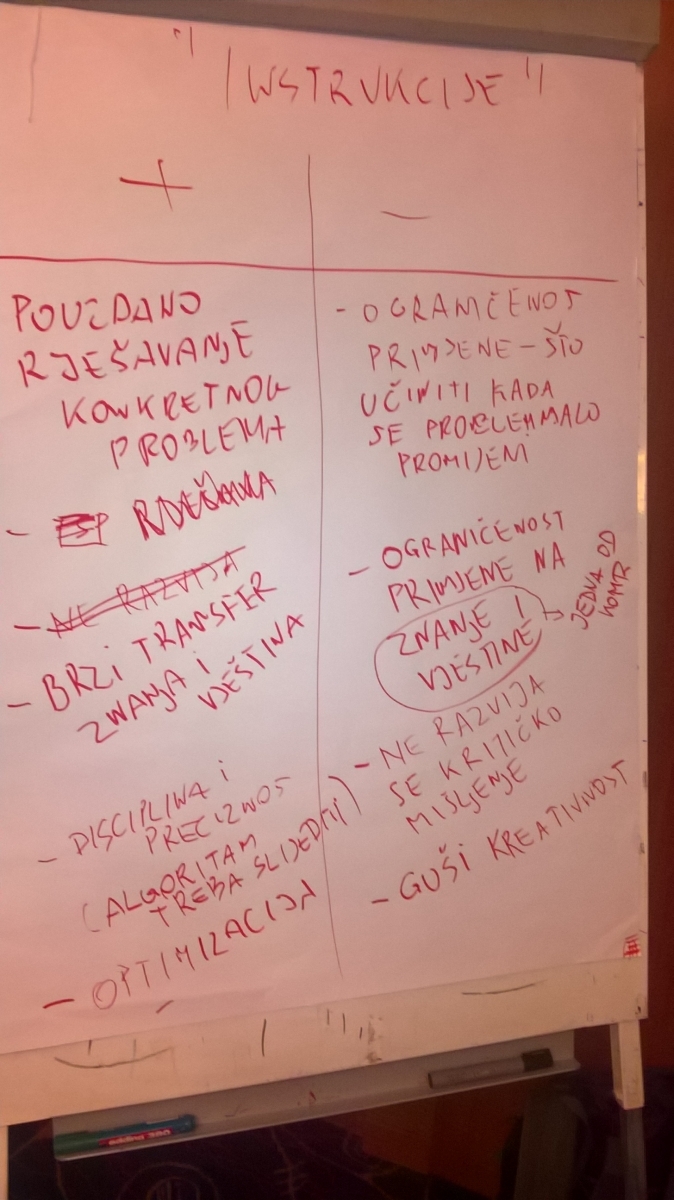 "INSTRUKCIJE"
+
-
POUZDANO
RJEŠAVANJE
KONKRETNOG
PROBLEMA
- RJEŠAVA
- NE RAZVIJA
- BRZI TRANSFER
ZNANJA I
VJEŠTINA
- DISCIPLINA i
PRECIZNOST
(ALGORITAM
TREBA SLIJEDITI)
- OPTIMIZACIJA
- OGRANIČENOST
PRIMJENE - ŠTO
UČINITI KADA
SE PROBLEM MALO
PROMIJENI
- OGRANIČENOST
PRIMJENE NA
ZNANJE I
VJEŠTINE
JEDNA OD
KOMP.
- NE RAZVIJA
SE KRITIČKO
MIŠLJENJE
- GUŠI KREATIVNOST
edding 380